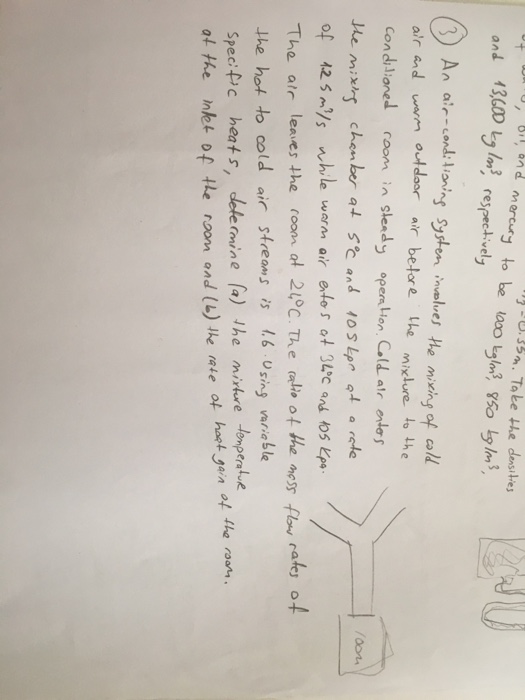 oil, and mercury to be 1000 kg/m³, 850 kg/m³,
and 13,600 kg/m³, respectively
③ An air-conditioning system involves the mixing of cold
air and warm outdoor air before the mixture to the
conditioned room in steady operation. Cold air enters
the mixing chamber at 5°C and 105 kpa at a rate
of 12 5 m³/s while warm air enters at 34°C and 105 Kpa.
The air leaves the room at 24°C. The ratio of the mass flow rates of
the hot to cold air streams is 1.6. Using variable
specific heats, determine (a) the mixture temperature
at the inlet of the room and (b) the rate of heat gain of the room.
room